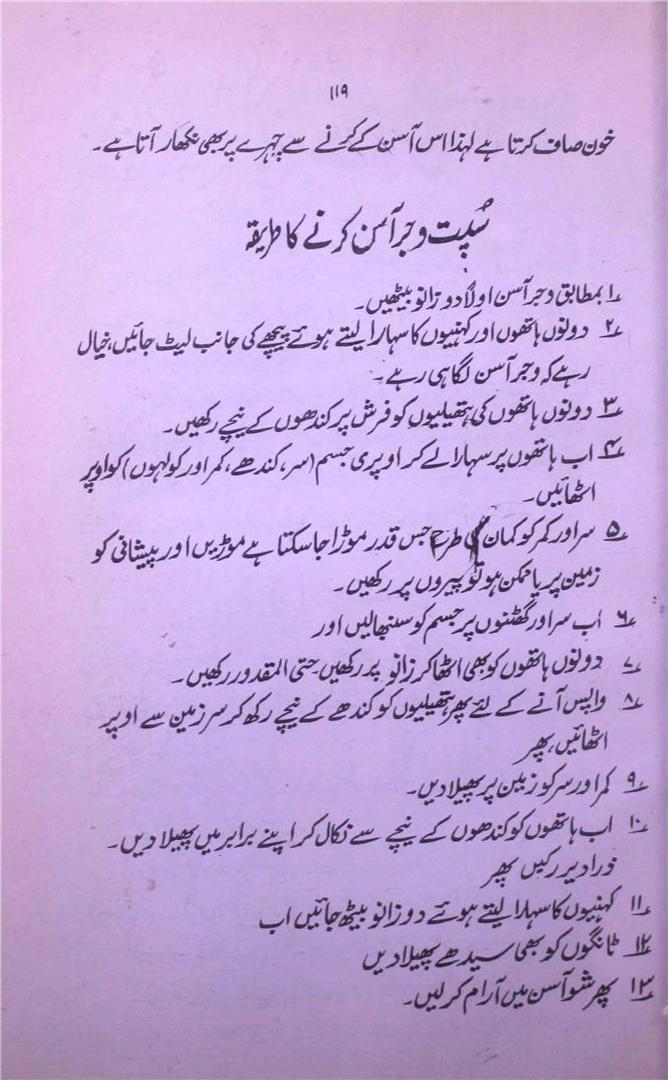 ۱۱۹
خون صاف کرتا ہے لہٰذا اس آسن کے کرنے سے چہرے پر بھی نکھار آتا ہے۔
سُپت وجر آسن کرنے کا طریقہ
۱ بمطابق وجر آسن اولاً دو زانو بیٹھیں۔
۲ دونوں ہاتھوں اور کہنیوں کا سہارا لیتے ہوئے پیچھے کی جانب لیٹ جائیں، خیال
رہے کہ وجر آسن لگا ہی رہے۔
۳ دونوں ہاتھوں کی ہتھیلیوں کو فرش پر کندھوں کے نیچے رکھیں۔
۴ اب ہاتھوں پر سہارا لے کر اوپری جسم (سر، کندھے، کمر اور کولہوں) کو اوپر
اٹھائیں۔
۵ سر اور کمر کو کمان کی طرح جس قدر موڑا جا سکتا ہے موڑیں اور پیشانی کو
زمین پر یا ممکن ہو تو پیروں پر رکھیں۔
۶ اب سر اور گھٹنوں پر جسم کو سنبھالیں اور
۷ دونوں ہاتھوں کو بھی اٹھا کر زانو پر رکھیں۔ حتی المقدور رکھیں۔
۸ واپس آنے کے لئے پھر ہتھیلیوں کو کندھے کے نیچے رکھ کر سر زمین سے اوپر
اٹھائیں، پھر
۹ کمر اور سر کو زمین پر پھیلا دیں۔
۱۰ اب ہاتھوں کو کندھوں کے نیچے سے نکال کر اپنے برابر میں پھیلا دیں۔
ذرا دیر رکیں پھر
۱۱ کہنیوں کا سہارا لیتے ہوئے دو زانو بیٹھ جائیں اب
۱۲ ٹانگوں کو بھی سیدھے پھیلا دیں
۱۳ پھر شو آسن میں آرام کر لیں۔